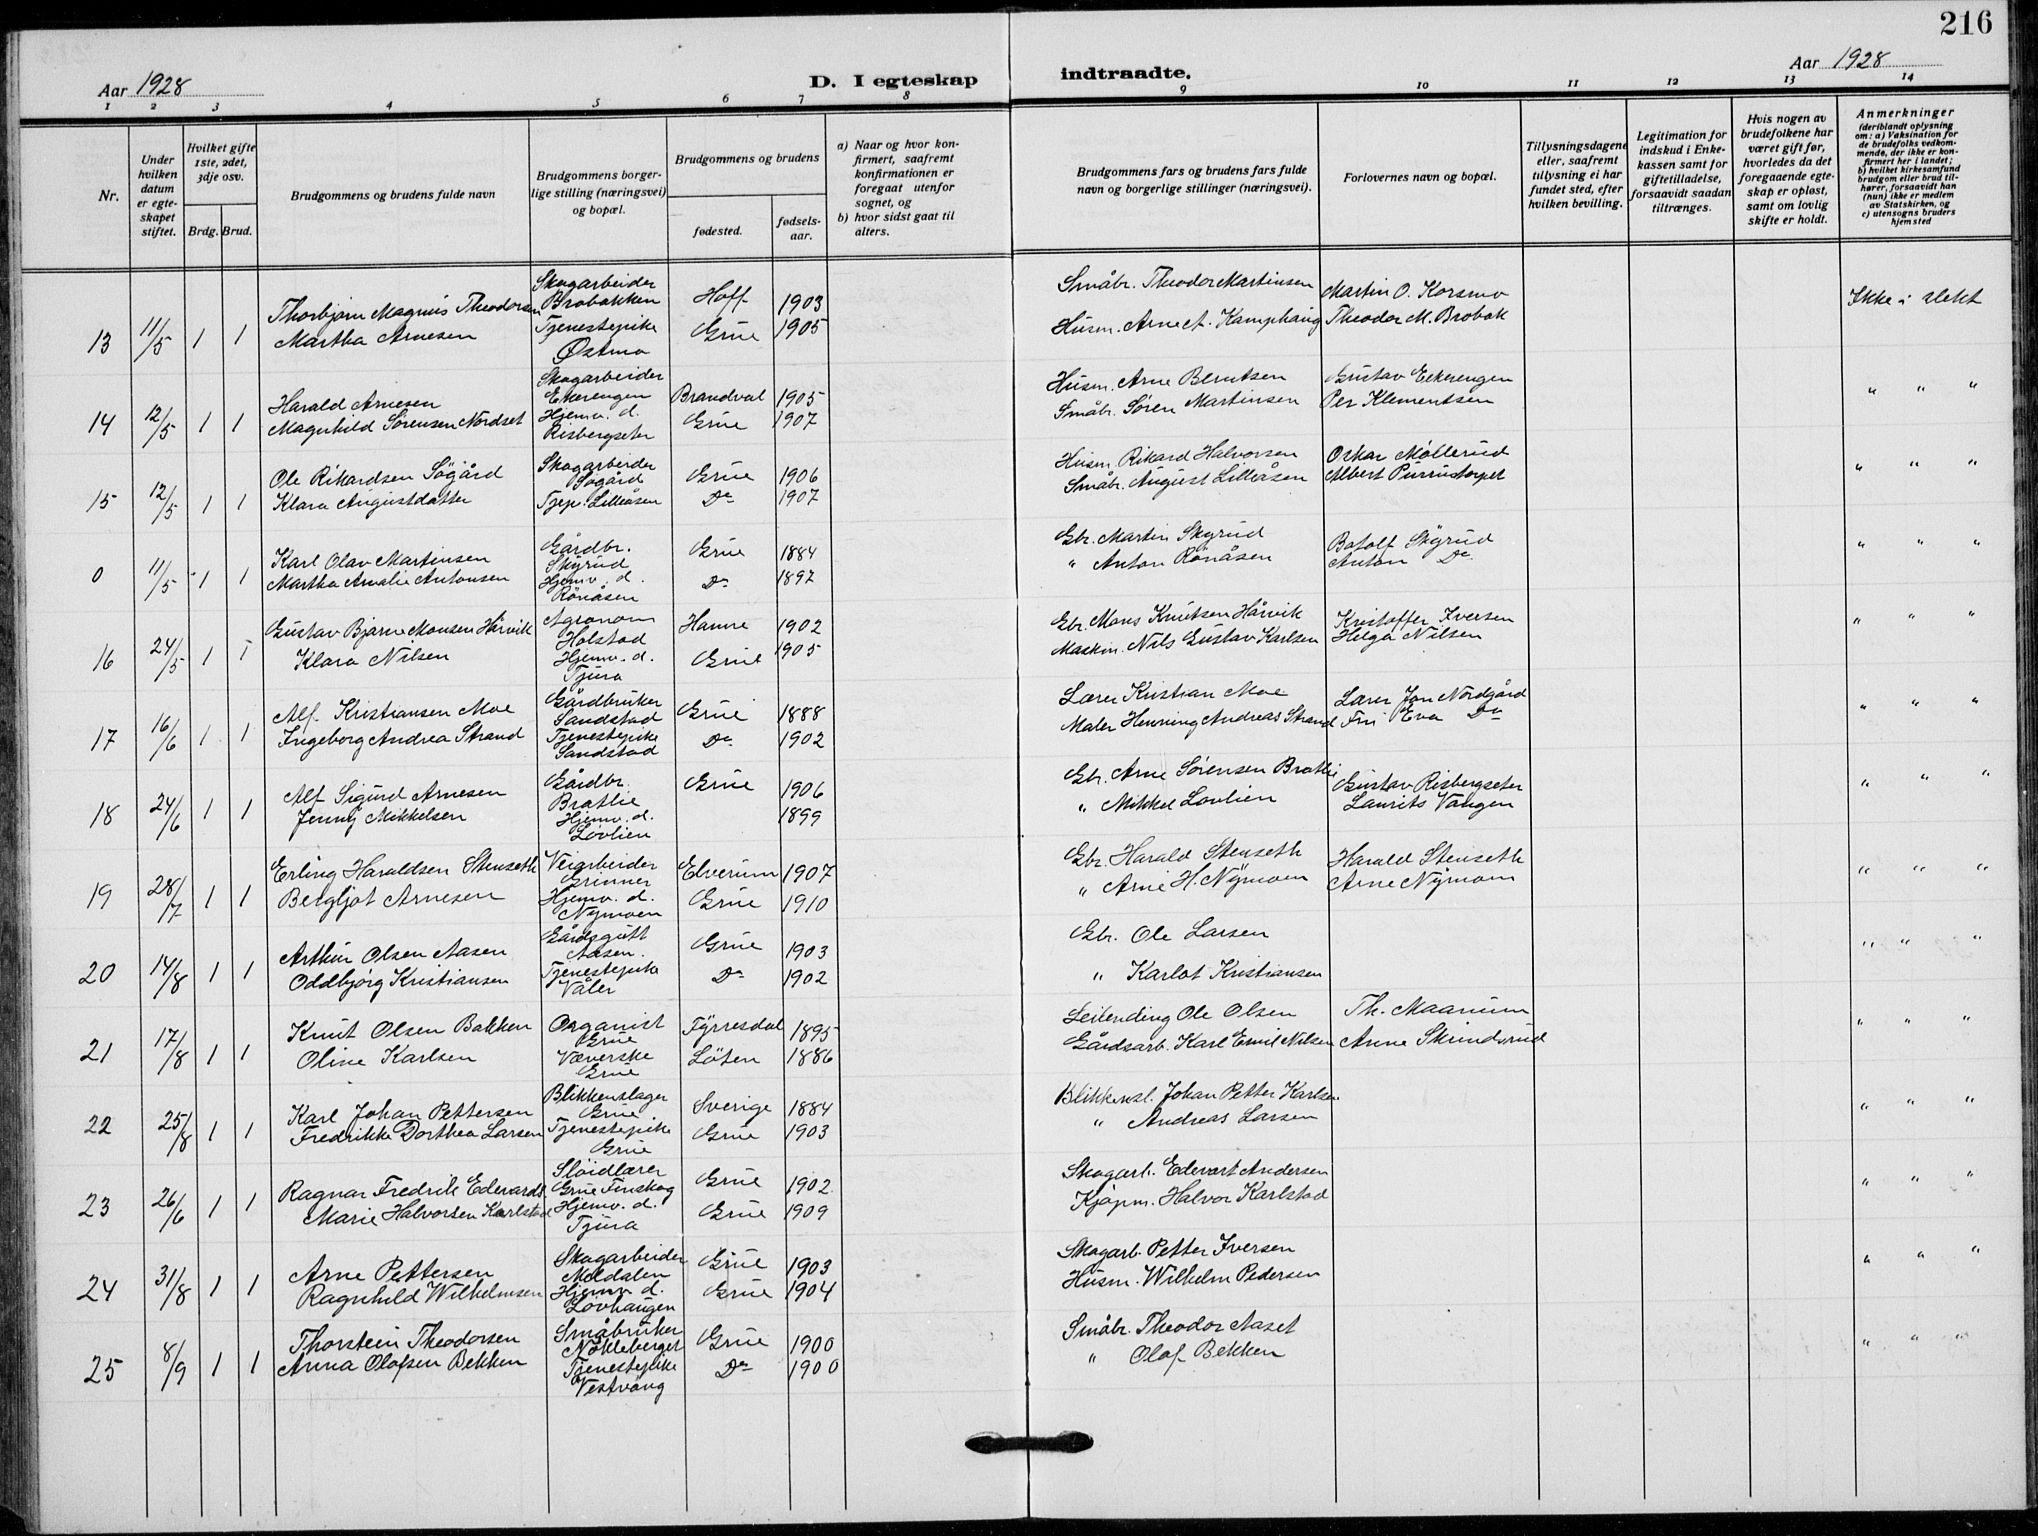 216
Aar 1928
D. I egteskap
indtraadte.
Aar 1928
1 2 3 4 5 6 7 8
9 10 11 12 13 14
Nr.
Under hvilken datum er egteskapet stiftet.
Hvilket gifte 1ste, 2det, 3dje osv.
Brdg. Brud.
Brudgommens og brudens fulde navn
Brudgommens borgerlige stilling (næringsvei) og bopæl.
Brudgommens og brudens
fødested.
fødselsaar.
a) Naar og hvor konfirmert, saafremt konfirmationen er foregaat utenfor sognet, og
b) hvor sidst gaat til alters.
Brudgommens fars og brudens fars fulde navn og borgerlige stillinger (næringsvei).
Forlovernes navn og bopæl.
Tillysningsdagene eller, saafremt tillysning ei har fundet sted, efter hvilken bevilling.
Legitimation for indskud i Enkekassen samt for giftetilladelse, forsaavidt saadan tiltrænges.
Hvis nogen av brudefolkene har været gift før, hvorledes da det foregaaende egteskap er opløst, samt om lovlig skifte er holdt.
Anmerkninger
(deriblandt oplysning om: a) Vaksination for de brudefolks vedkommende, der ikke er konfirmert her i landet; b) hvilket kirkesamfund brudgom eller brud tilhører, forsaavidt han (hun) ikke er medlem av Statskirken, og c) utensogns bruders hjemsted
13 11/5 1 1 Thorbjørn Magnus Theodorsen Skogarbeider Brobakken Hoff 1903 Småbr. Theodor Martinsen Martin O. Korsmo Ikke i slekt
Martha Arnesen Tjenestepike Østmo Grue 1905 Husm. Arne A. Kamphaug Theodor M. Brobak
14 12/5 1 1 Harald Arnesen Skogarbeider Ekerengen Brandval 1905 Husm. Arne Berntsen Gustav Eekerengen " " "
Magnhild Sørensen Nordset Hjemv. d. Risbergseter Grue 1907 Småbr. Søren Martinsen Per Klementsen
15 12/5 1 1 Ole Rikardsen Søgård Skogarbeider Søgård Grue 1906 Husm. Rikard Halvorsen Oskar Møllerud " " "
Klara Augustdatter Tjep. Lilleåsen Do 1907 Småbr. August Lilleåsen Albert Purrustorpet
0 11/5 1 1 Karl Olav Martinsen Gårdbr. Skyrud Grue 1884 Gbr. Martin Skyrud Botolf Skyrud " " "
Martha Amalie Antonsen Hjemv. d. Rönåsen Do 1897 " Anton Rönåsen Anton Do
16 24/5 1 1 Gustav Bjarne Monsen Hårvik Agronom Holstad Hamre 1902 Gbr. Mons Knutsen Hårvik Kristoffer Iversen " " "
Klara Nilsen Hjemv. d. Tjura Grue 1905 Maskin. Nils Gustav Karlsen Helga Nilsen
17 16/6 1 1 Alf Kristiansen Moe Gårdbruker Sandstad Grue 1888 Lærer Kristian Moe Lærer Jon Nordgård " " "
Ingeborg Andrea Strand Tjenestepike Sandstad Do 1902 Maler Henning Andreas Strand Fru Eva Do
18 24/6 1 1 Alf Sigurd Arnesen Gårdbr. Bratlie Grue 1906 Gbr. Arne Sørensen Bratlie Gustav Risbergseter " " "
Jenny Mikkelsen Hjemv. d. Lovlien 1899 " Mikkel Lovlien Laurits Vangen
19 28/7 1 1 Erling Haraldsen Stenseth Veiarbeider Grinner Elverum 1907 Gbr. Harald Stenseth Harald Stenseth " " "
Bergljot Arnesen Hjemv. d. Nymoen Grue 1910 " Arne H. Nymoen Arne Nymoen
20 14/8 1 1 Arthur Olsen Aasen Gårdsgutt Aasen. Grue 1903 Gbr. Ole Larsen " " "
Oddbjørg Kristiansen Tjenestepike Våler Do 1902 " Karlot Kristiansen
21 17/8 1 1 Knut Olsen Bakken Organist Grue Fyrresdal 1895 Leilending Ole Olsen Th. Maanum " " "
Oline Karlsen Væverske Grue Löten 1886 Gårdsarb. Karl Emil Nilsen Arne Skrindsrud
22 25/8 1 1 Karl Johan Pettersen Blikkenslager Grue Sverige 1884 Blikkensl. Johan Petter Karlsen " " "
Fredrikke Dorthea Larsen Tjenestepike Grue Grue 1903 " Andreas Larsen
23 26/6 1 1 Ragnar Fredrik Edvards Slöidlærer Grue Finskog Grue 1902 Skogarb. Edevart Andersen " " "
Marie Halvorsen Karlstad Hjemv. d. Tjura Grue 1909 Kjøpm. Halvor Karlstad
24 31/8 1 1 Arne Pettersen Skogarbeider Moldalen Grue 1903 Skogarb. Petter Iversen " " "
Ragnhild Wilhelmsen Hjemv d. Lovhaugen Grue 1904 Husm. Wilhelm Pedersen
25 8/9 1 1 Thorstein Theodorsen Småbruker Nökleberget Grue 1900 Småbr. Theodor Aaset " " "
Anna Olafsen Bekken Tjenestepike Vestvang Do 1900 " Olaf Bekken